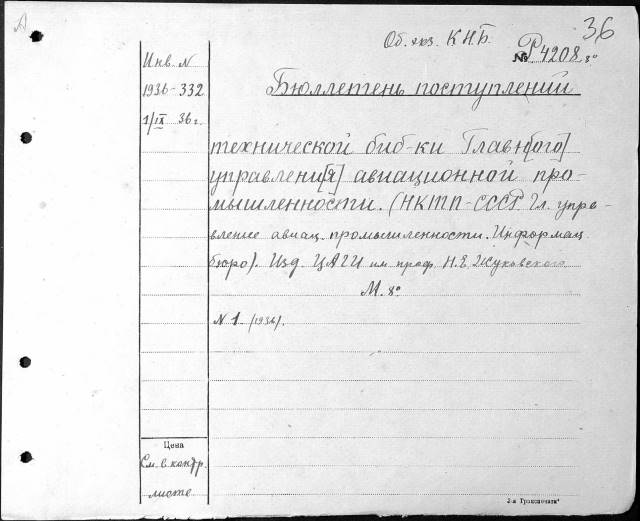 А
36
Об. экз. К.Н.Б.
№ Р4208 8°
Инв. N
1936-332
1/IX 36 г.
Бюллетень поступлений
технической биб-ки Главн[ого]
управлени[я] авиационной про-
мышленности. (НКТП-СССР. Гл. упра-
вление авиац. промышленности. Информац.
бюро). Изд. ЦАГИ им проф. Н.Е. Жуковского.
М. 8°
N 1 (1936).
Цена
См. в контр.
листе
3-я Транспечать